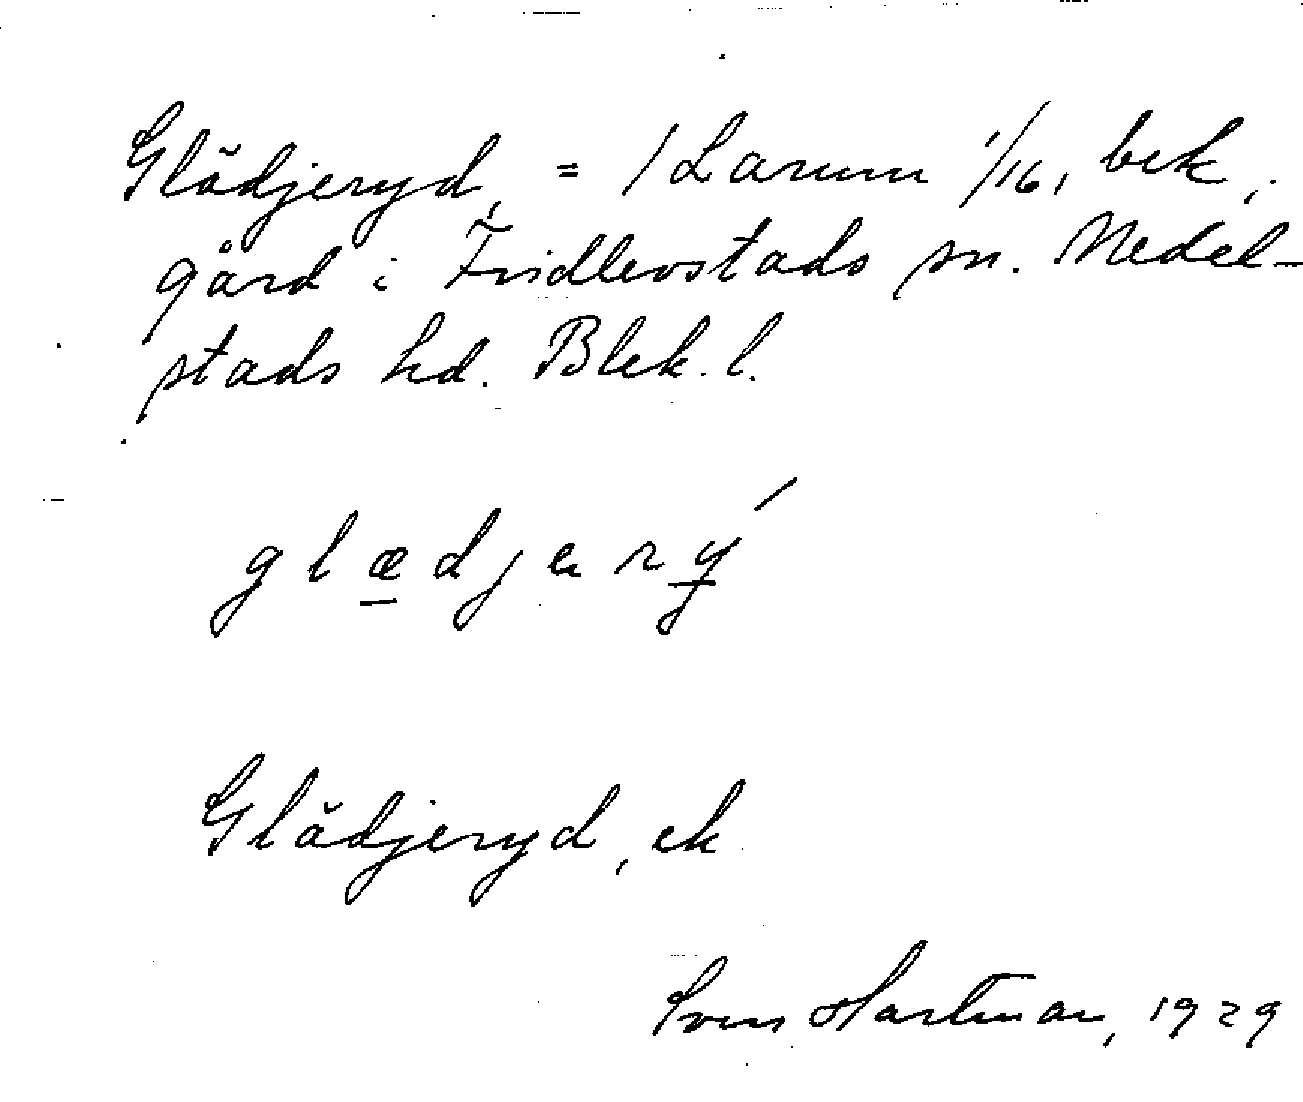 Glädjeryd, = 1 Larum 1/16, bek.
gård i Fridlevstads sn. Medel-
stads hd. Blek. l.
glædjerý
Glädjeryd, ek
Sven Hartman, 1929